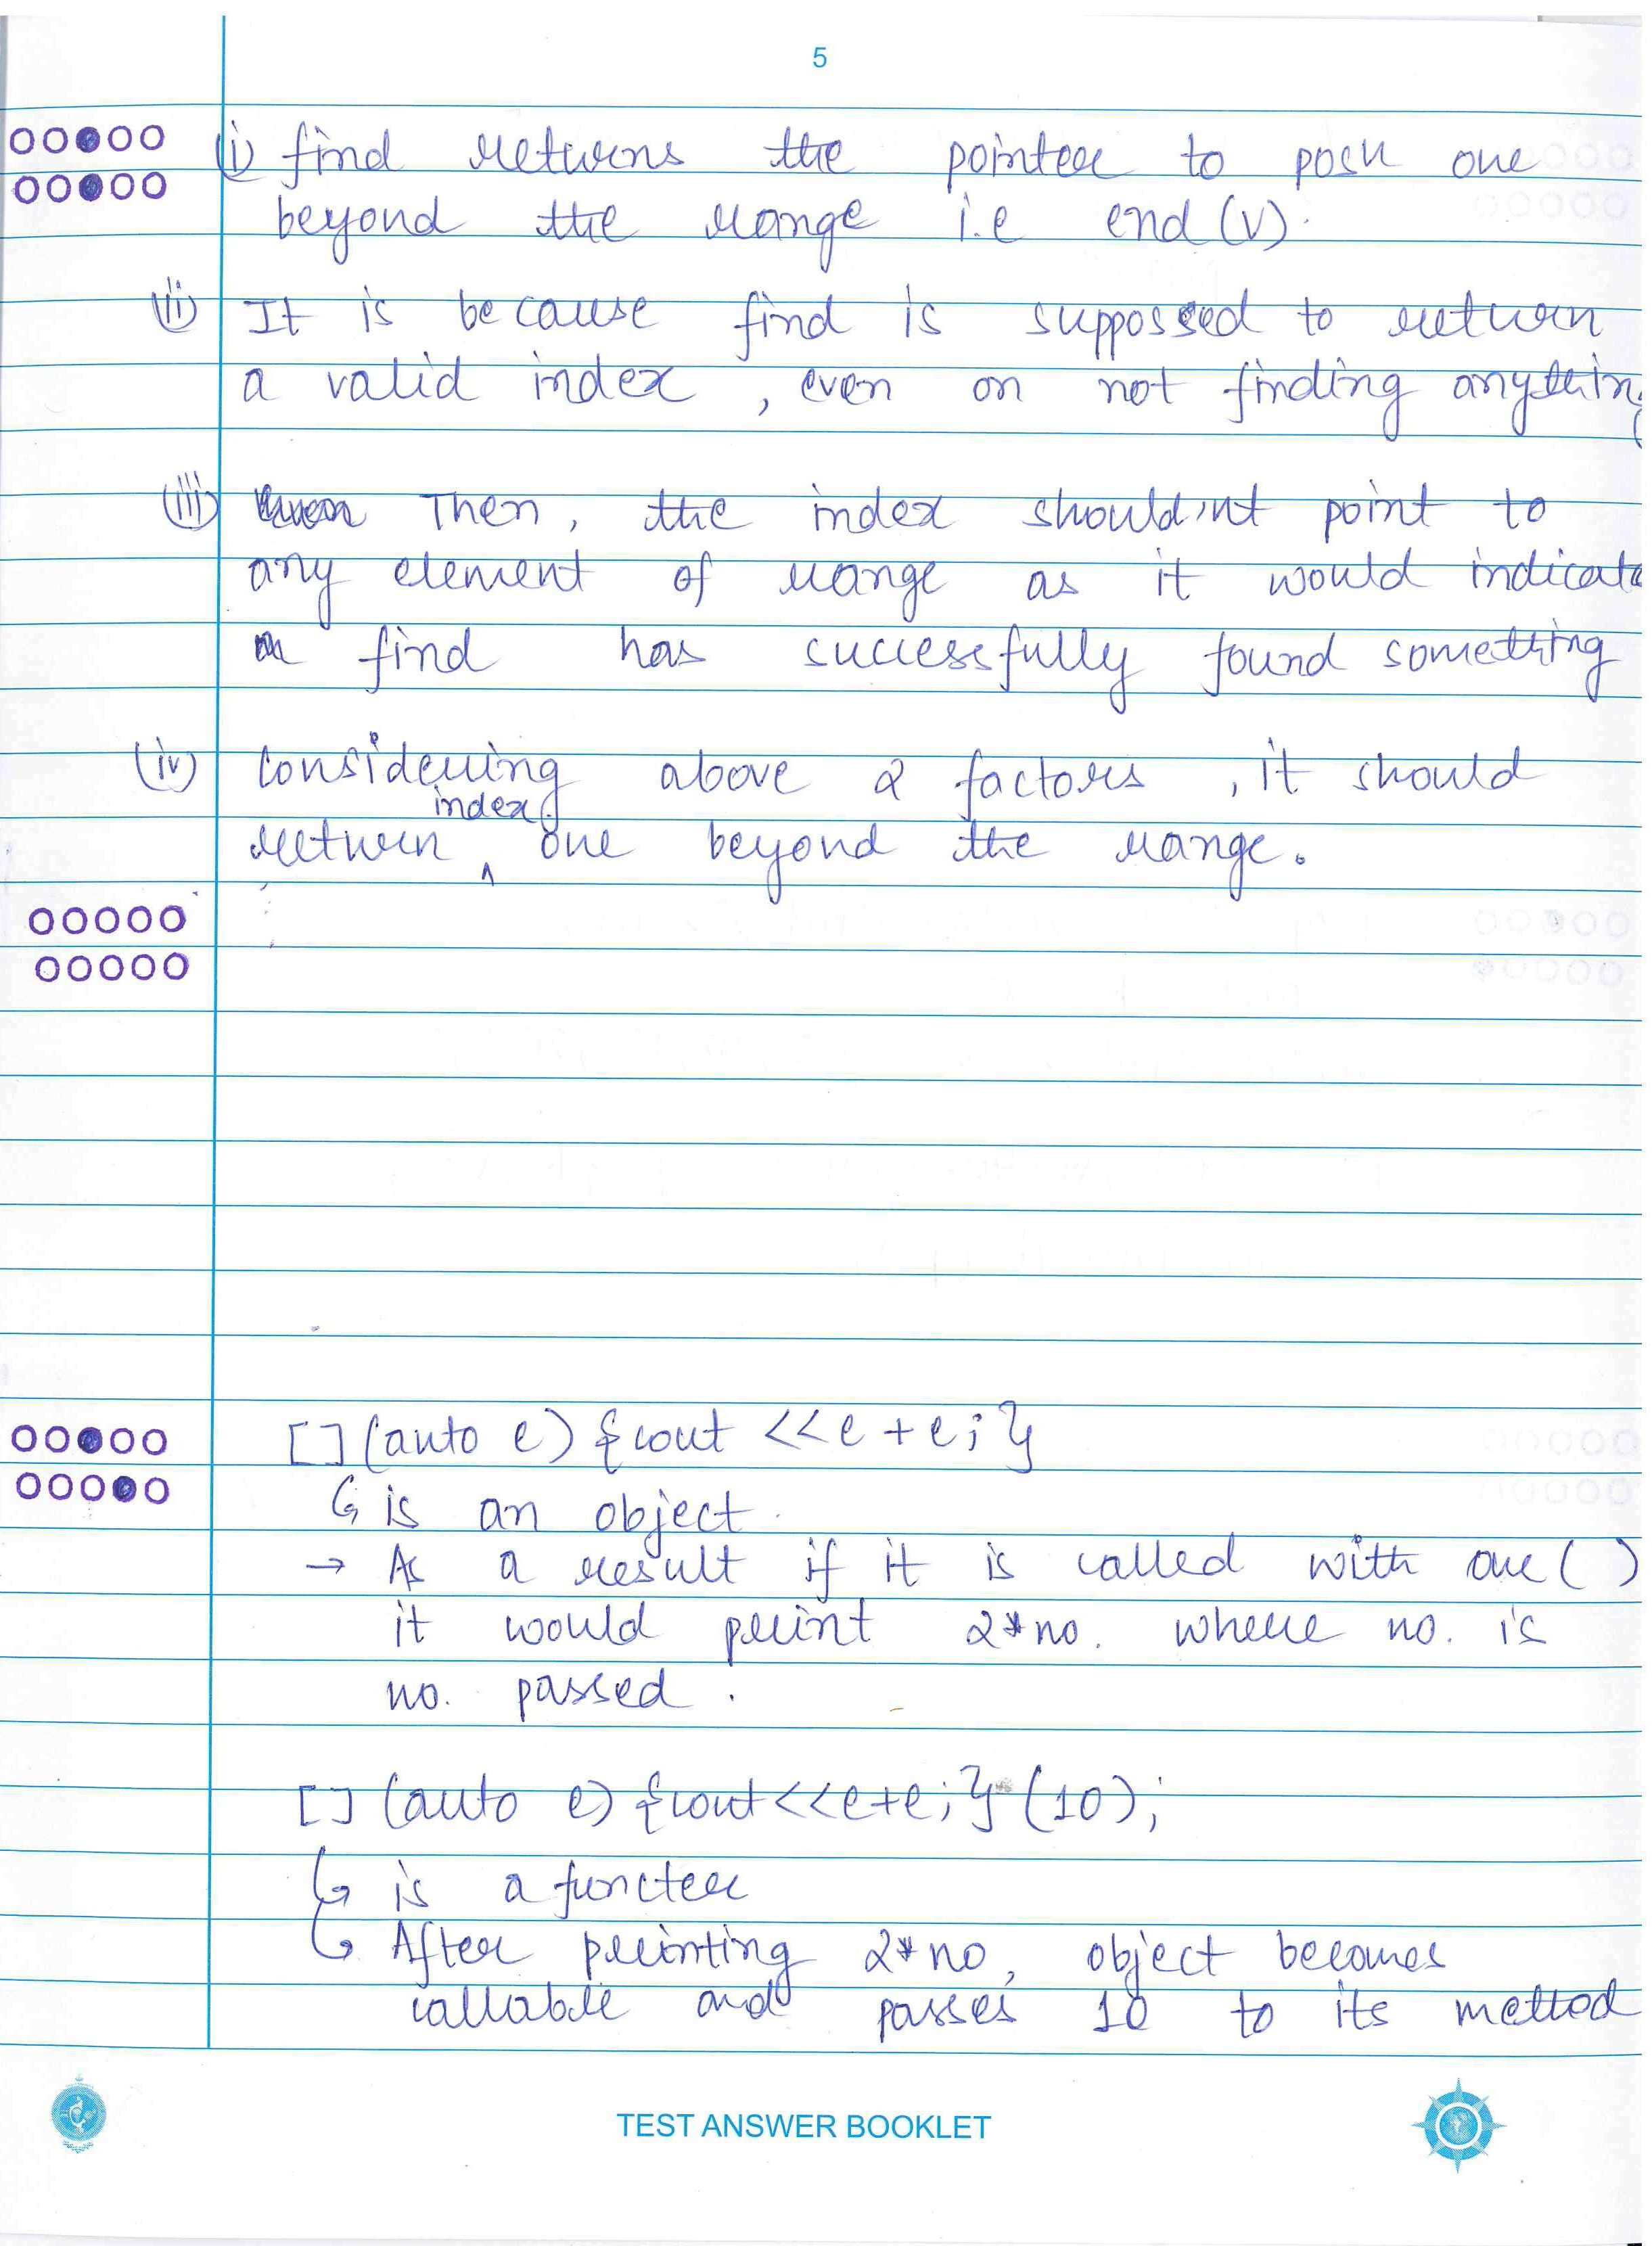 5
(i) find returns the pointer to posn one
beyond the range i.e end (v).
(ii) It is because find is supposed to return
a valid index, even on not finding anything
(iii) Then, the index should'nt point to
any element of range as it would indicate
find has successfully found something
(iv) Considering above 2 factors, it should
index
return ^ one beyond the range.
[] (auto e) {cout <<e+e;}
↳ is an object.
→ As a result if it is called with one ()
it would print 2*no. where no. is
no. passed.
[] (auto e) {cout<<e+e;} (10);
↳ is a functer
↳ After printing 2*no, object becomes
callable and passes 10 to its method
TEST ANSWER BOOKLET